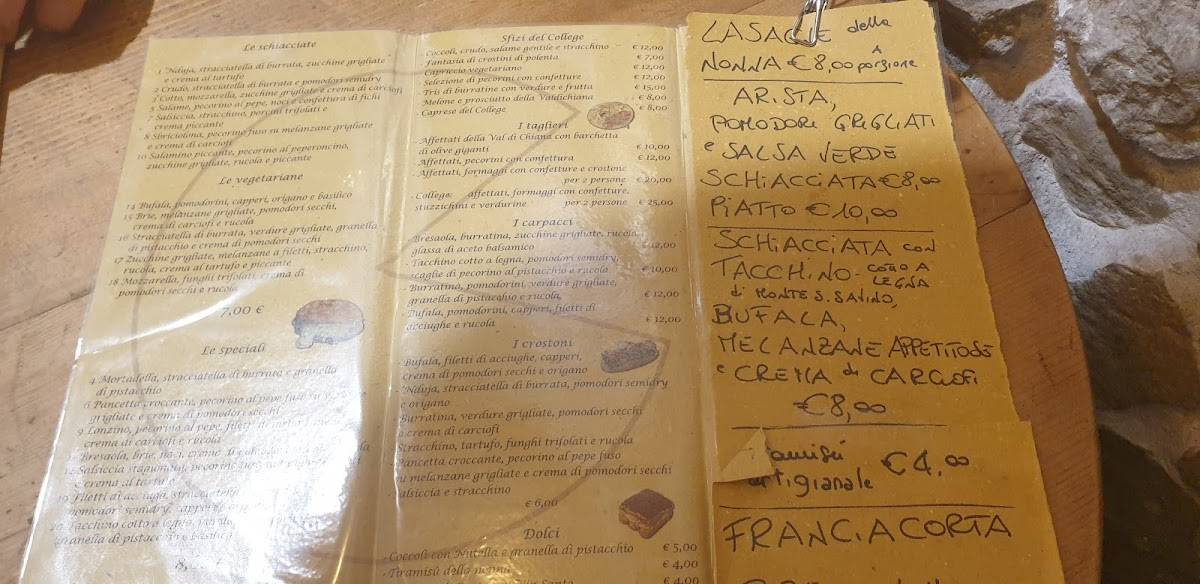 Le schiacciate
1 'Nduja, stracciatella di burrata, zucchine grigliate
e crema al tartufo
2 Crudo, stracciatella di burrata e pomodori semidry
3 Cotto, mozzarella, zucchine grigliate e crema di carciofi
5 Salame, pecorino al pepe, noci e confettura di fichi
7 Salsiccia, stracchino, porcini trifolati e
crema piccante
8 Sbriciolona, pecorino fuso su melanzane grigliate
e crema di carciofi
10 Salamino piccante, pecorino al peperoncino,
zucchine grigliate, rucola e piccante
Le vegetariane
14 Bufala, pomodorini, capperi, origano e basilico
15 Brie, melanzane grigliate, pomodori secchi,
crema di carciofi e rucola
16 Stracciatella di burrata, verdure grigliate, granella
di pistacchio e crema di pomodori secchi
17 Zucchine grigliate, melanzane a filetti, stracchino,
rucola, crema al tartufo e piccante
18 Mozzarella, funghi trifolati, crema di
pomodori secchi e rucola
7,00 €
Le speciali
4 Mortadella, stracciatella di burrata e granella
di pistacchio
6 Pancetta croccante, pecorino al pepe fuso su
grigliate e crema di pomodori secchi
9 Lonzino, pecorino al pepe,
crema di carciofi e rucola
Bresaola, brie, noci, crema di
Salsiccia stagionata, pecorino
crema al tartufo
19 Filetti di acciuga,
pomodori semidry, capperi
20 Tacchino cotto a legna,
granella di pistacchio e basilico
8,
Sfizi del College
- Coccoli, crudo, salame gentile e stracchino € 12,00
- Fantasia di crostini di polenta € 7,00
- Capriccio vegetariano € 12,00
- Selezione di pecorini con confetture € 12,00
- Tris di burratine con verdure e frutta € 15,00
- Melone e prosciutto della Valdichiana € 8,00
- Caprese del College € 8,00
I taglieri
- Affettati della Val di Chiana con barchetta
di olive giganti € 10,00
- Affettati, pecorini con confettura € 12,00
- Affettati, formaggi con confetture e crostone
per 2 persone € 20,00
- College: affettati, formaggi con confetture,
stuzzichini e verdurine per 2 persone € 25,00
I carpacci
- Bresaola, burratina, zucchine grigliate, rucola,
glassa di aceto balsamico € 12,00
- Tacchino cotto a legna, pomodori semidry,
scaglie di pecorino al pistacchio e rucola € 10,00
- Burratina, pomodorini, verdure grigliate,
granella di pistacchio e rucola € 12,00
- Bufala, pomodorini, capperi, filetti di
acciughe e rucola € 12,00
I crostoni
- Bufala, filetti di acciughe, capperi,
crema di pomodori secchi e origano
- 'Nduja, stracciatella di burrata, pomodori semidry
e origano
- Burratina, verdure grigliate, pomodori secchi
e crema di carciofi
- Stracchino, tartufo, funghi trifolati e rucola
- Pancetta croccante, pecorino al pepe fuso
su melanzane grigliate e crema di pomodori secchi
- Salsiccia e stracchino
€ 6,00
Dolci
- Coccoli con Nutella e granella di pistacchio € 5,00
- Tiramisù della nonna € 4,00
€ 4,00
LASAGNE della
NONNA € 8,00 A porzione
ARISTA,
POMODORI GRIGLIATI
e SALSA VERDE
SCHIACCIATA € 8,00
PIATTO € 10,00
SCHIACCIATA con
TACCHINO COTTO A LEGNA
di MONTE S. SAVINO,
BUFALA,
MELANZANE APPETITOSE
e CREMA di CARCIOFI
€ 8,00
Tiramisú
artigianale € 4,00
FRANCIACORTA